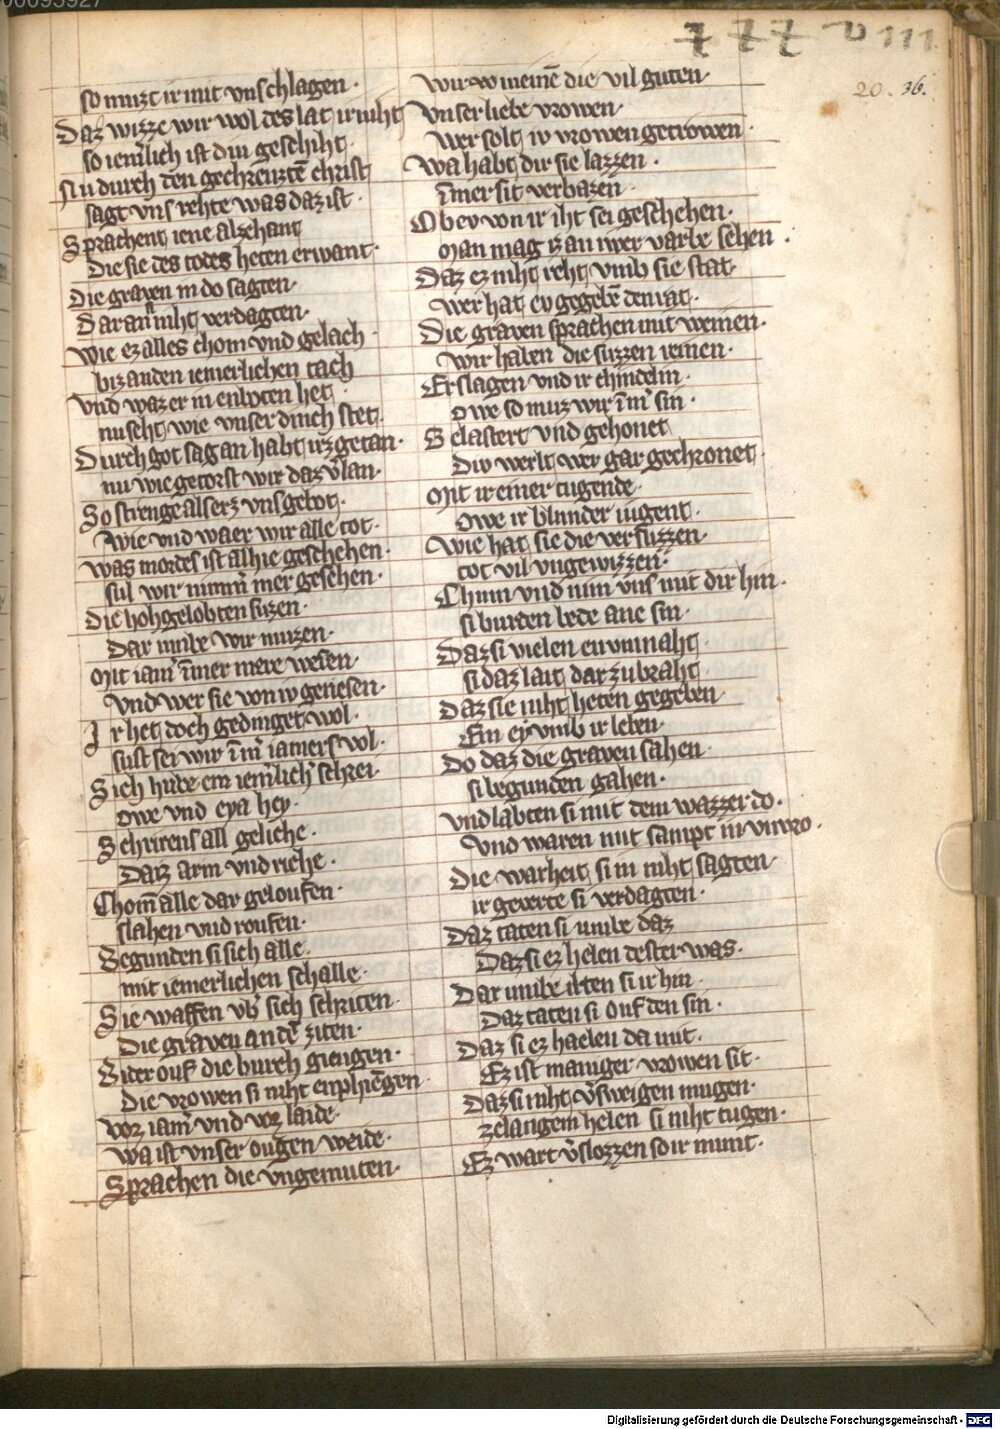 so muzt ir mit vns chlagen ·
Daz wizze wir wol des lat ir niht
so iem̄lich ist diu geschiht ·
Nu durch den gechreuztē christ
sagt vns rehte was daz ist ·
Sprachent iene alzehant
die sie des todes heten erwant ·
Die graven in do sagten ·
Daran niht verdagten ·
wie ez alles chom vnd gelach
biz an den iemerlichen tach
Vnd waz er in enboten het ·
nu seht wie vnser dinch stet ·
Durch got sag an habt irz getan ·
nu wie getorst wir daz v̄lan ·
So strenge als erz vns gebot ·
wie vnd waer wir alle tot ·
was mordes ist alhie geschehen ·
sul wir nimm̄ mer gesehen ·
die hohgelobten suzen ·
Dar umbe wir muzen ·
Mit iam̄ īmer mere wesen ·
Vnd wer sie von iv genesen ·
Ir het doch gedinget wol ·
sust sei wir īm̄ iamers vol ·
Sich hube ein iem̄lich schrei ·
owe vnd eya hey ·
Schrirens all geliche ·
Daz arm vnd riche ·
Chom̄ alle dar geloufen ·
slahen vnd roufen ·
Begunden si sich alle ·
mit iemerlichen schalle ·
Sie waffen vb̄ sich schriten ·
Die graven an dē ziten ·
Wider ouf die burch giengen ·
die vrowen si niht enphiēgen ·
Vor iam̄ vnd vor laide ·
wa ist vnser ougen weide ·
Sprachen die vngemuten ·
wir meinē die vil guten ·
Vnser liebe vrowen ·
wer solt iv vrowen getrowen ·
Wa habt dir sie lazzen ·
īmer sit verbazen ·
Ob ev von ir iht sei geschehen ·
Man mag iz an iwer varbe sehen ·
Daz ez niht reht vmb sie stat ·
wer hat ev gegebē den rat ·
Die graven sprachen mit weinen ·
wir haben die suzzen reinen ·
Erslagen vnd ir chindelin ·
owe so muz wir īm̄ sin ·
Gelastert vnd gehonet
Div werlt wer gar gechronet ·
Mit ir einer tugende ·
owe ir blunder iugent ·
Wie hat sie die versuzzen ·
tot vil vngewizzen ·
Chum vnd nim vns mit dir hin ·
si burden bede ane sin ·
Daz si vielen en vmmaht ·
si daz lait dar zu braht ·
Daz sie niht heten gegeben ·
Ein ey vmb ir leben ·
Do daz die graven sahen ·
si begunden gahen ·
Vnd labten si mit dem wazzer do ·
Vnd waren mit sampt in vnvro ·
Die warheit si in niht sagten ·
ir geverte si verdagten ·
Daz taten si umbe daz
Daz si ez helen dester was ·
Dar umbe ilten si ir hin ·
Daz taten si ouf den sin ·
Daz si ez haelen da mit ·
Ez ist maniger vrowen sit ·
Daz si niht v̄sweigen mugen ·
zelangem helen si niht tugen ·
Ez wart v̄slozzen so ir munt ·
20. 36.
Digitalisierung gefördert durch die Deutsche Forschungsgemeinschaft - DFG